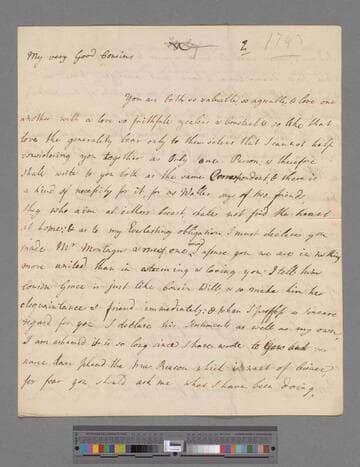 2 1743
My very Good Cousins
You are both so valuable so agreable, & love one
another with a love so faithfull & constant & so like that
love the generality bear only to themselves that I cannot help
considering you together as Only one Person, & therefore
shall write to you both as the same Correspondent & there is
a kind of necessity for it, for as Waller says of two friends,
they who aim at eithers breast shall not find the
at home: & as to my Everlasting obligation I must declare you
made Mr Montagu & me one and I assure you we are in nothing
more united than in esteeming & loving you: I tell him
Cousin Grace is just like Cousin Will, & so make him her
acquaintance & friend immediately: & when I profess a sincere
regard for you I declare his Sentiments as well as my own,
I am ashamed it is so long since I have wrote to you and
nor dare plead the true Reason which is want of time
for fear you should ask me what I have been doing,